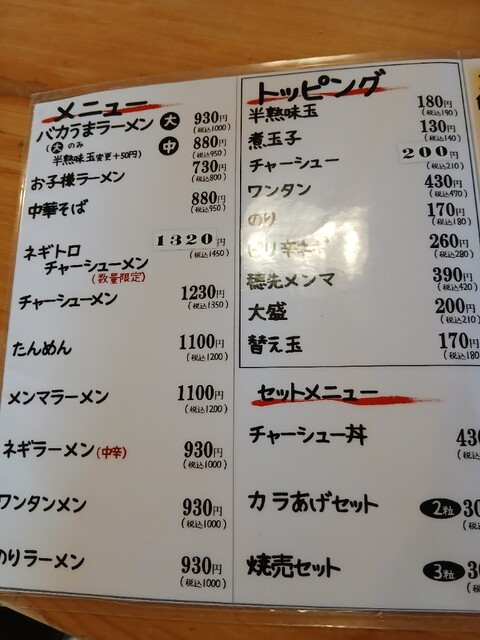 メニュー
バカうまラーメン 大 930円
(税込1000)
(大のみ 中 880円
半熟味玉変更+50円) (税込950)
お子様ラーメン 730円
(税込800)
中華そば 880円
(税込950)
ネギトロ 1320円
チャーシューメン (税込1450)
(数量限定)
チャーシューメン 1230円
(税込1350)
たんめん 1100円
(税込1200)
メンマラーメン 1100円
(税込1200)
ネギラーメン(中辛) 930円
(税込1000)
ワンタンメン 930円
(税込1000)
のりラーメン 930円
(税込1000)
トッピング
半熟味玉 180円
(税込190)
煮玉子 130円
(税込140)
チャーシュー 200円
(税込210)
ワンタン 430円
(税込470)
のり 170円
(税込180)
ピリ辛ネギ 260円
(税込280)
穂先メンマ 390円
(税込420)
大盛 200円
(税込210)
替え玉 170円
(税込180
セットメニュー
チャーシュー丼 430
(税込
カラあげセット 2粒 30
焼売セット 3粒 30